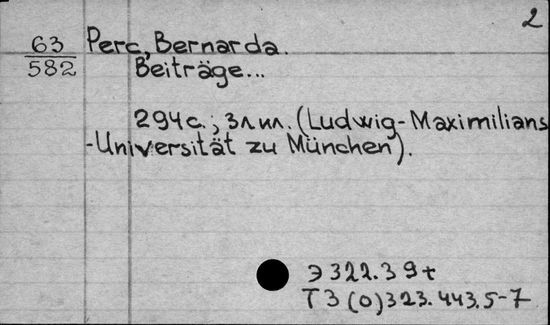 2
63
582
Perc, Bernarda.
Beiträge...
294 с.; 3 л ил. (Ludwig-Maximilians
-Universität zu München).
Э 322.39т
Т3(0)323.443.5-7